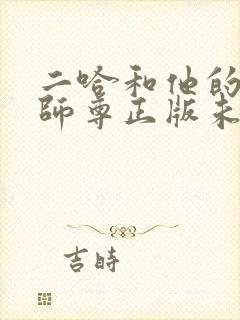 二哈和他的
師尊正版未
吉時